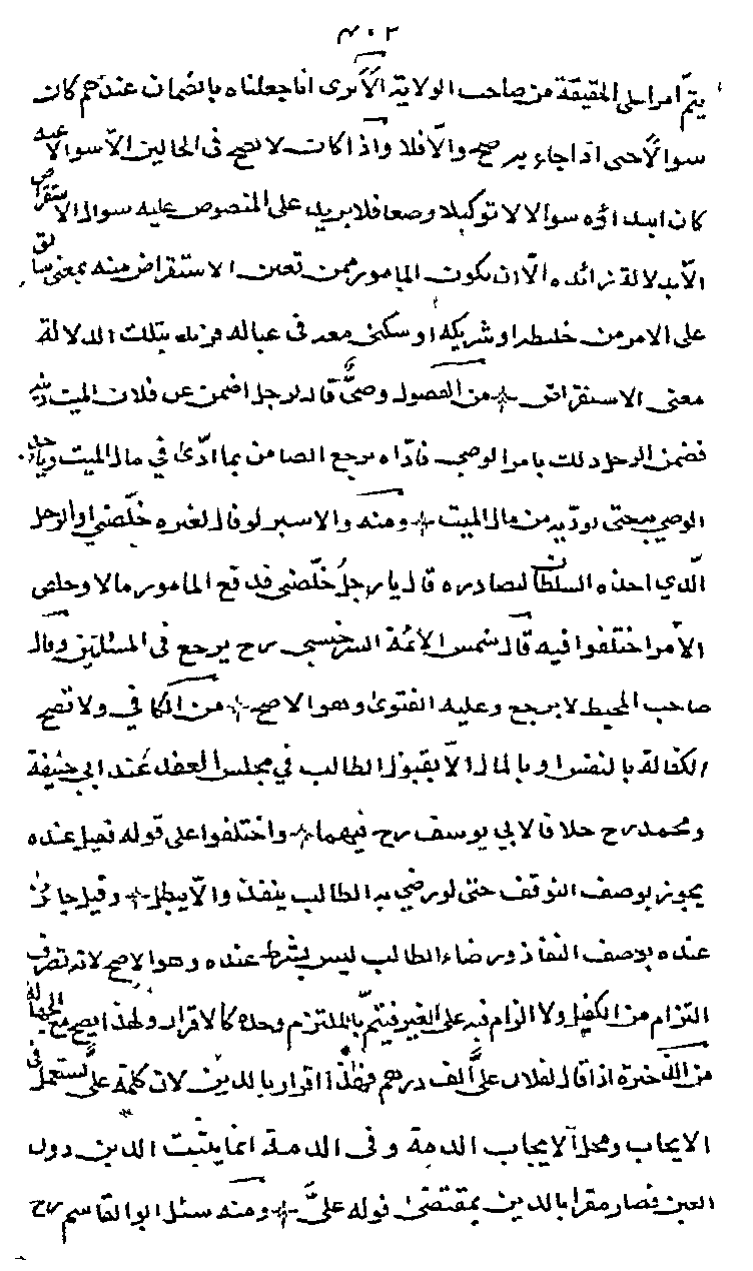 ٤٠٢
يتم امرا على الحقيقة من صاحب الولاية الا يرى انا جعلناه بالضمان عندهم كان
سوالا حتى اذا جاء به صح والا فلا واذا كانت لا تصح فى الحالين الا سوالا عنه
كان ابتداؤه سوالا لا توكيلا وضعا فلا يزيد على المنصوص عليه سوال الاستقراض
الا بدلالة زائدة الا ان يكون المامور ممن تعين الاستقراض منه بمعنى سابق
على الامر من خليط او شريكه او سكنى معه فى عياله فزيد بتلك الدلالة
معنى الاستقراض من الفصول وصى قال لرجل اضمن عن فلان الميت دينه
فضمن الرجل ذلك بامر الوصي فادّاه يرجع الضامن بما ادّى في مال الميت
الوصي حتى يوديه من مال الميت ومنه والاسير لو قال لغيره خلّصني او الرجل
الّذي اخذه السلطان ليصادره قال يا رجل خلّصني فدفع المامور مالا وخلص
الآمر اختلفوا فيه قال شمس الائمة السرخسي رح يرجع فى المسئلتين وقال
صاحب المحيط لا يرجع وعليه الفتوى وهو الاصح من الكافي ولا تصح
الكفالة بالنفس او بالمال الّا بقبول الطالب في مجلس العقد عند ابي حنيفة
ومحمد رح خلافا لابي يوسف رح فيهما واختلفوا على قوله فقيل عنده
يجوز بوصف التوقف حتى لو رضي به الطالب ينفذ والّا يبطل وقيل جائز
عنده بوصف النفاذ ورضاء الطالب ليس بشرط عنده وهو الاصح لانه تصرف
التزام من الكفيل ولا الزام فيه على الغير فيتمّ بالملتزم وحده كالاقرار ولهذا يصح مع الجهالة
من الذخيرة اذا قال لفلان علىّ الف درهم فهذا اقرار بالدين لان كلمة علىّ تستعمل فى
الايجاب ومحل الايجاب الذمة وفى الذمة انما يثبت الدين دون
العين فصار مقرا بالدين بمقتضى قوله علىّ ومنه سئل ابو القاسم رح